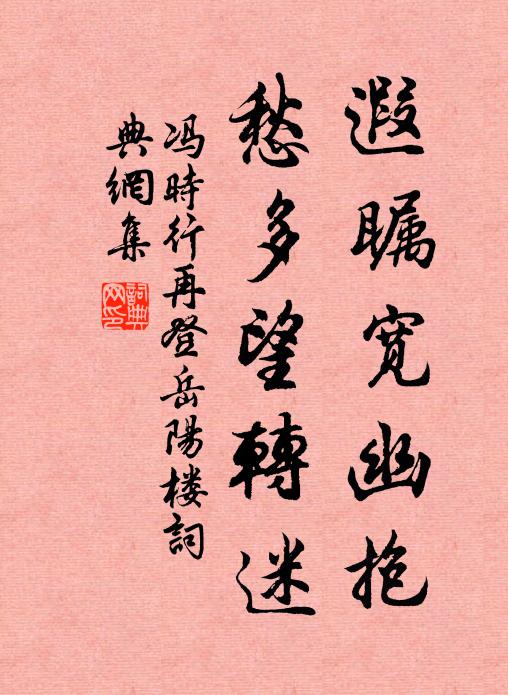 遐瞩宽幽抱
愁多望轉迷
冯時行再登岳陽楼詞
典網集
詞典网印